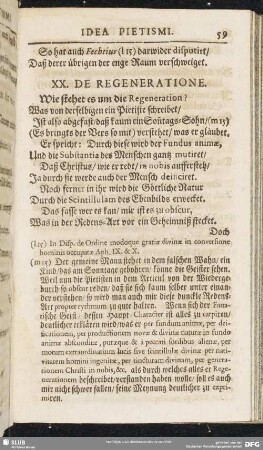 IDEA PIETISMI. 59
So hat auch Fechtius (l 15) darwider disputirt/
Daß derer übrigen der enge Raum verschweiget.
XX. DE REGENERATIONE.
Wie stehet es um die Regeneration?
Was von derselbigen ein Pietiste schreibet/
Ist also abgefast/ daß kaum ein Sontags-Sohn/ (m 15)
(Es bringts der Vers so mit) verstehet/ was er gläubet,
Er spricht: Durch diese wird der Fundus animæ,
Und die Substantia des Menschen gantz mutiret/
Daß Christus/ wie er redt/ in nobis aufersteh/
Ja durch sie werde auch der Mensch deificiret.
Noch ferner in ihr wird die Göttliche Natur
Durch die Scintillulam des Ebenbilds erwecket.
Das fasse wer es kan/ mir ist es zu obscur,
Was in der Redens-Art vor ein Geheimniß stecket.
Doch
(l 15) In Disp. de Ordine modoque gratiæ divinæ in conversione
hominis occupatæ Aph. IX. & X.
(m 15) Der gemeine Mann stehet in dem falschen Wahn/ ein
Kind/ das am Sonntage gebohren/ könne die Geister sehen.
Weil nun die Pietisten in dem Articul von der Wiederge-
burth so obscur reden/ daß sie sich kaum selber unter einan-
der verstehen/ so wird man auch mir diese dunckle Redens-
Art propter rythmum zu gute halten. Wenn sich der
tische Geist/ dessen Haupt-Character ist alles zu
deutlicher erklären würde/ was er per fundum animæ, per dei-
ficationem, per productionem novæ & divinæ naturæ in fundo
animæ absconditæ, putæque & a peccati sordibus alienæ, per
motum extraordinarium lucis sive scintillulæ divinæ per nati-
vitatem homini ingenitæ, per tincturam divinam, per genera-
tionem Christi in nobis, &c. als durch welches alles er Rege-
nerationem beschreibet/ verstanden haben wolle/ soll es auch
mir nicht schwer fallen/ seine Meynung deutlicher zu
miren.
SLUB